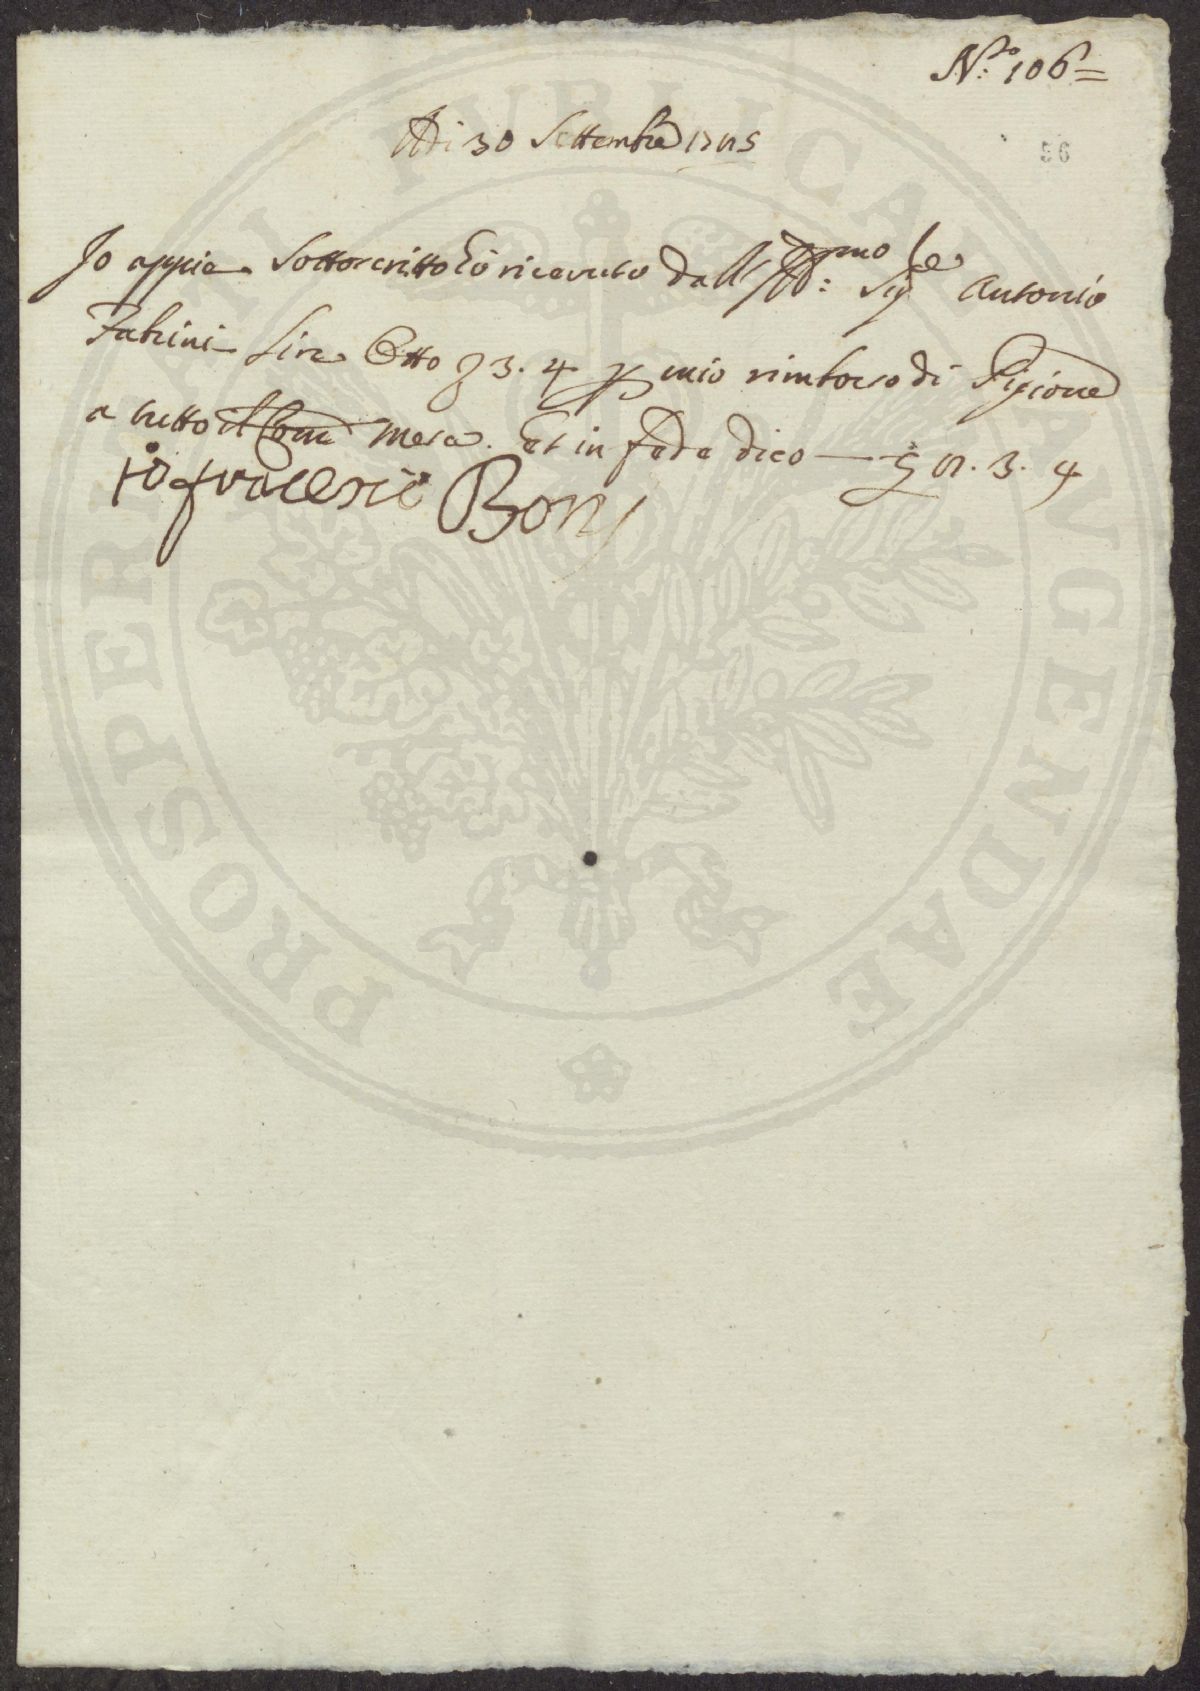 N.º 106=
Adi 30 Settembre 1705
56
Io appiè Sottoscritto hò ricevuto dall Ill:mo Sigre Antonio
Fabrini Lire Otto 3. 4 p mio rimborso di Pigione
a tutto il Comē Mese. Et in fede dico — 3. 4
io
Bonj
PROSPERITATI PVBLICAE AVGENDAE